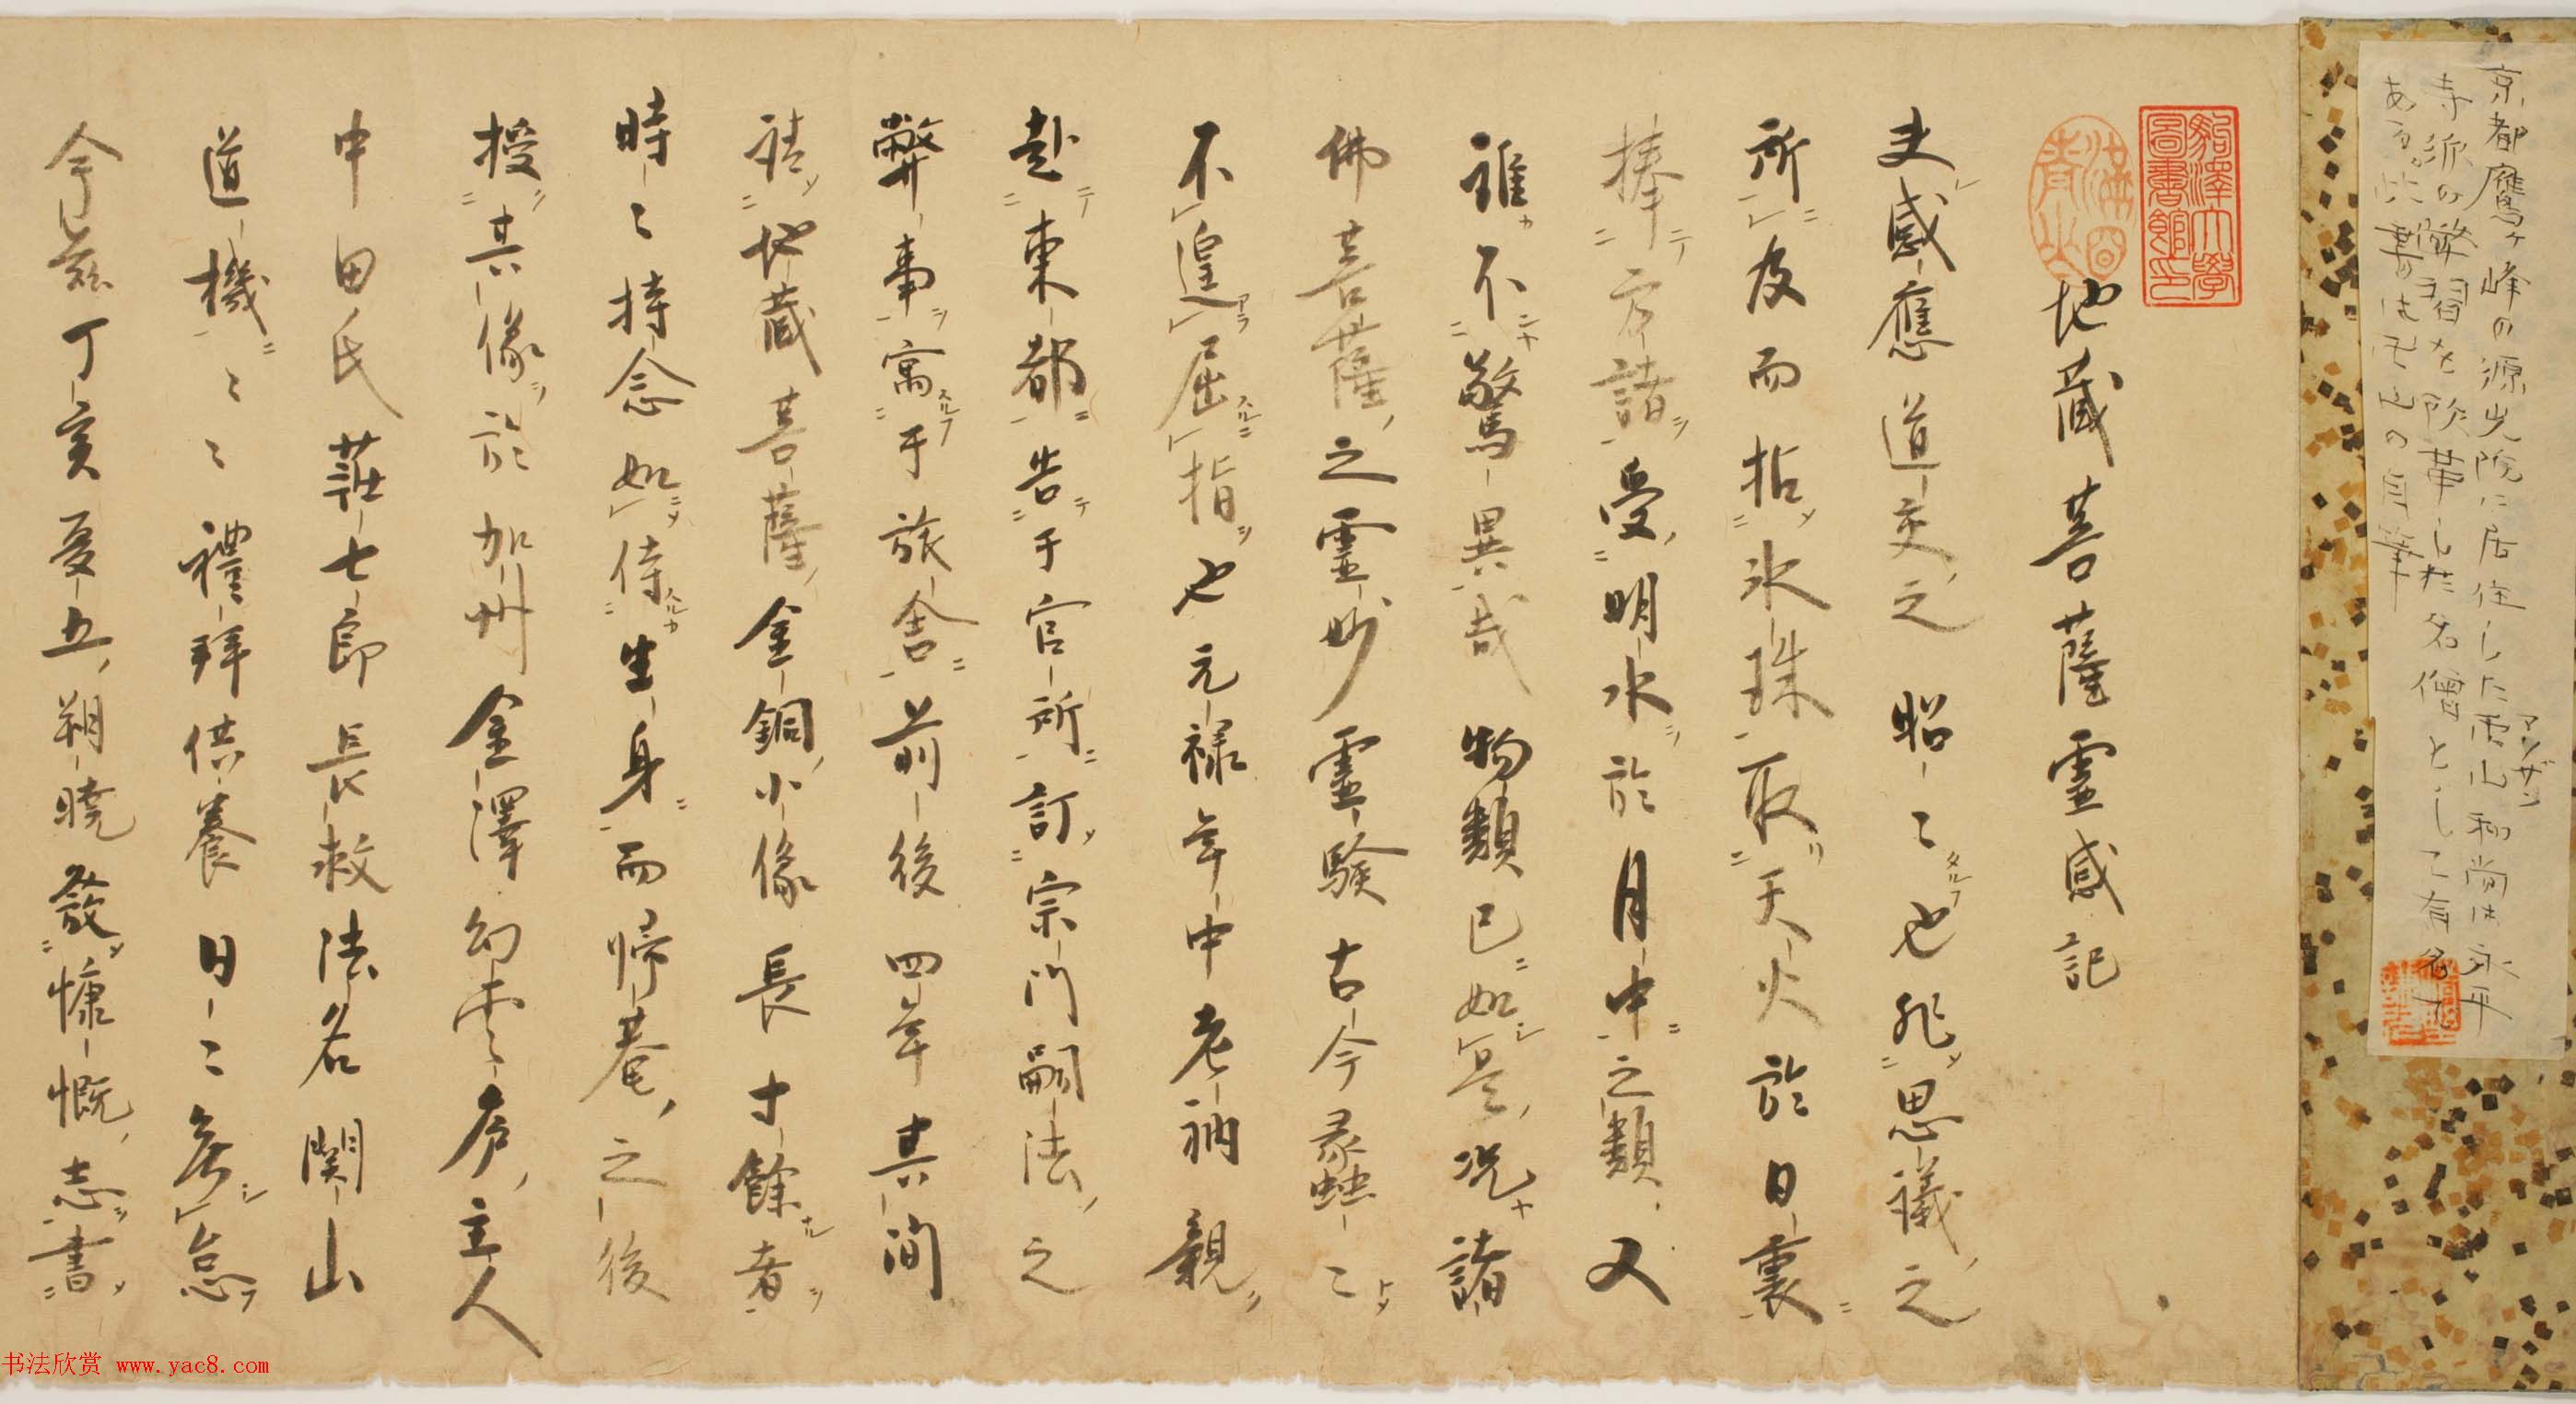 京都鷹ヶ峰の源光院に居住した卍山和尚は永平
マンザン
寺派の弊習を改革した名僧として有名で
ある。此書は卍山の自筆
駒澤大學圖書館印
地蔵菩薩霊感記
夫感應道交之昭〻也非思議之
所及而拈氷珠取天火於日裏
捧方諸受明水於月中之類又
誰不驚異哉物類已如是況諸
佛菩薩之霊妙霊驗古今蠡〻
不遑屈指也元禄年中老衲親
赴東都告于官所訂宗門嗣法之
弊事寓于旅舎前後四年其間
請地蔵菩薩金銅小像長寸餘者
時〻持念如侍生身而帰菴之後
授其像於加州金澤幻雲庵主人
中田氏荘七郎長救法名関山
道機〻〻禮拜供養日〻無怠
今茲丁亥夏五朔暁發慷慨志書
书法欣赏 www.yac8.com